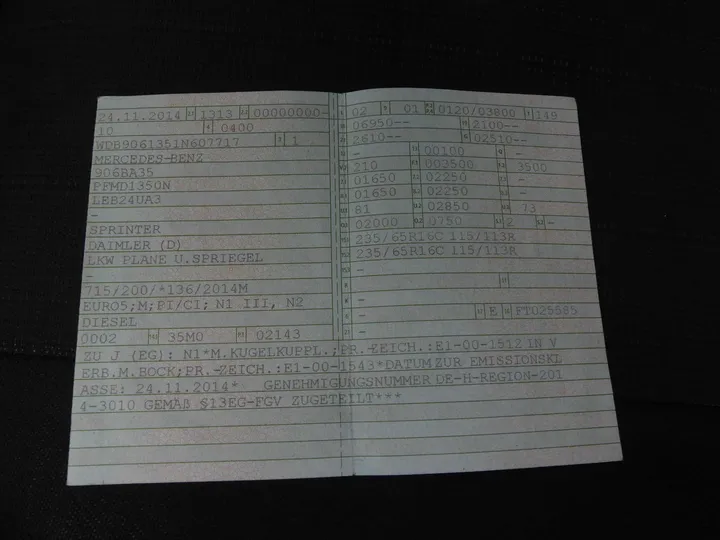 24.11.2014 1313 00000000-
10 0400
WDB9061351N607717 1
MERCEDES-BENZ
906BA35
PFMD1350N
LEB24UA3
-
SPRINTER
DAIMLER (D)
LKW PLANE U.SPRIEGEL
-
715/200/*136/2014M
EURO5;M;PI/CI; N1 III, N2
DIESEL
0002 35M0 02143
02 01 0120/03800 149
06950-- 2100--
2610-- 02510--
- 00100 -
210 003500 3500
01650 02250 -
01650 02250 -
81 02850 73
02000 0750 2 -
235/65R16C 115/113R
235/65R16C 115/113R
-
-
-
- E FT025585
-
ZU J (EG): N1*M.KUGELKUPPL.;PR.-ZEICH.:E1-00-1512 IN V
ERB.M.BOCK;PR.-ZEICH.:E1-00-1543*DATUM ZUR EMISSIONSKL
ASSE: 24.11.2014* GENEHMIGUNGSNUMMER DE-H-REGION-201
4-3010 GEMÄß §13EG-FGV ZUGETEILT***